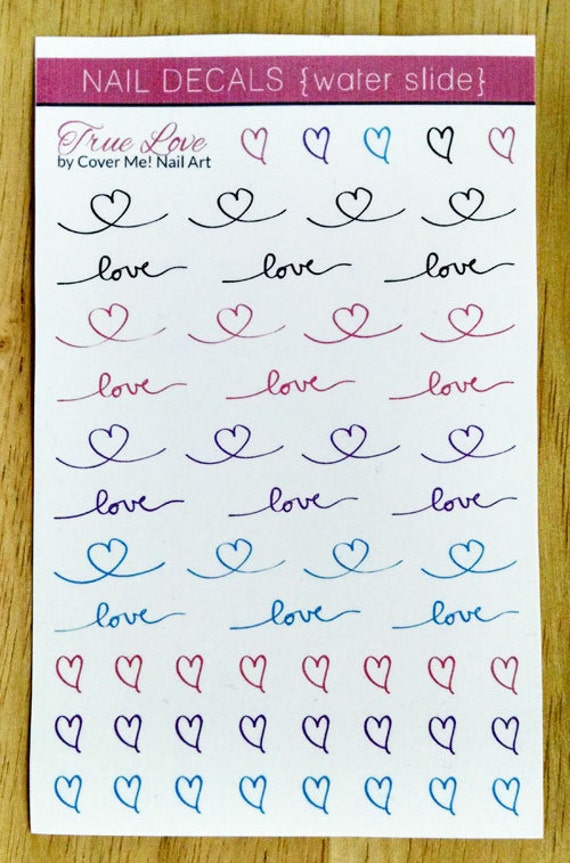 NAIL DECALS {water slide}
True Love
by Cover Me! Nail Art
love love love
love love love
love love love
love love love